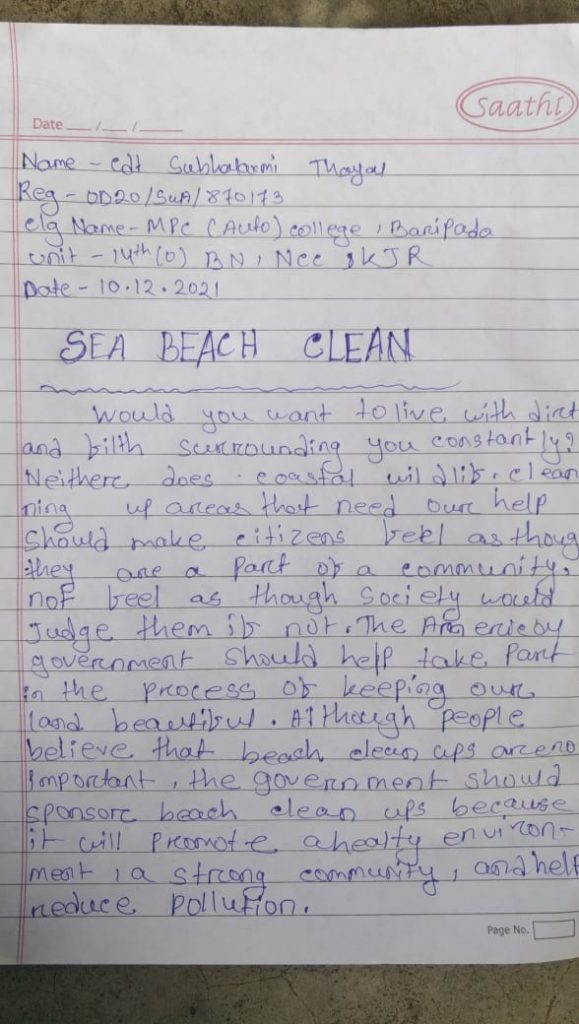 Saathi
Date ___/___/_____
Name - Cdt Subhalaxmi Thayal
Reg - OD20/SWA/870173
clg Name - MPC (Auto) college, Baripada
unit - 14th (O) BN, Ncc, KJR
Date - 10.12.2021
SEA BEACH CLEAN
Would you want to live with dirt
and filth surrounding you constantly?
Neither does coastal wildlife. clean
ning up areas that need our help
Should make citizens feel as thoug
they are a part of a community,
not feel as though society would
Judge them if not. The
government should help take part
in the process of keeping our
land beautiful. Although people
believe that beach clean ups are no
important, the government should
sponsor beach clean ups because
it will promote a healty environ-
ment, a strong community, and help
reduce pollution.
Page No.